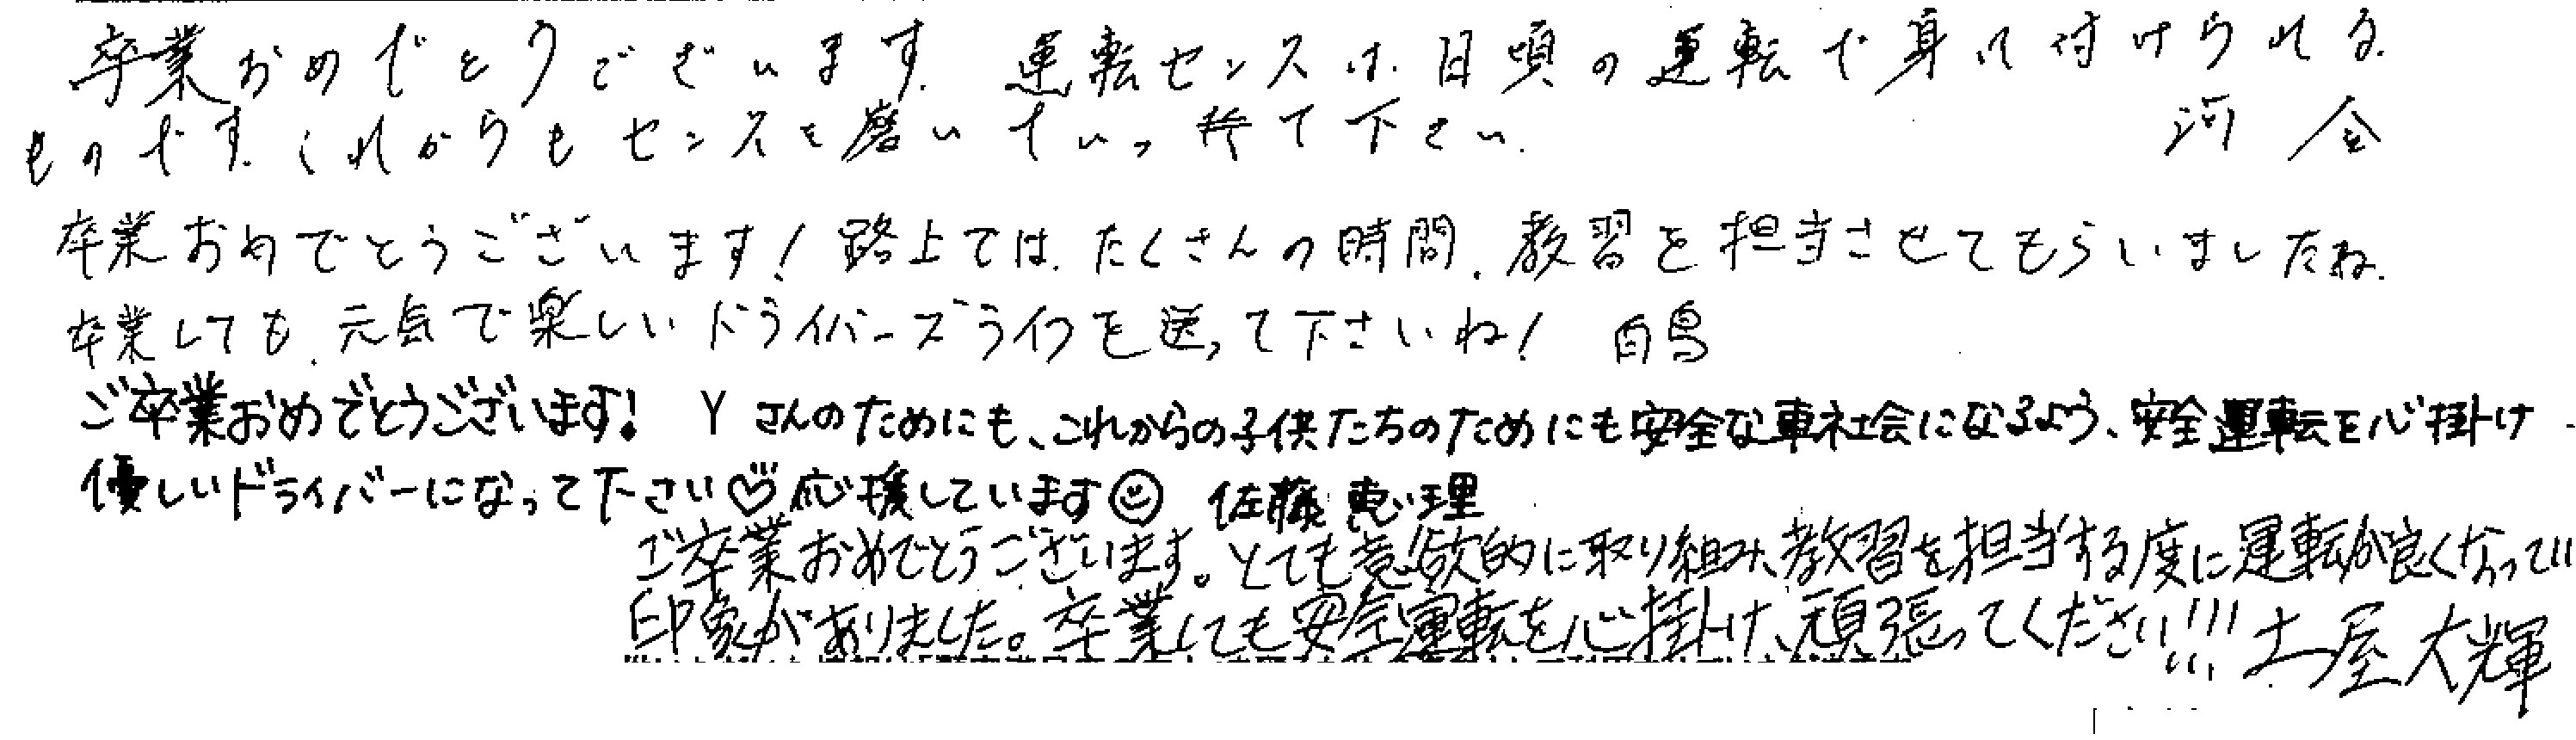 卒業おめでとうございます. 運転センスは.日頃の運転で身に付けられる
ものです.これからもセンスを磨いていって下さい. 河合
卒業おめでとうございます！路上では.たくさんの時間.教習を担当させてもらいましたね.
卒業しても.元気で楽しいドライバーズライフを送って下さいね！ 白鳥
ご卒業おめでとうございます！ Yさんのためにも、これからの子供たちのためにも安全な車社会になるよう、安全運転を心掛け
優しいドライバーになって下さい♡応援しています☺ 佐藤 恵理
ご卒業おめでとうございます。とても意欲的に取り組み、教習を担当する度に運転が良くなってい
印象がありました。卒業しても安全運転を心掛け、頑張ってください!!! 土屋大輝